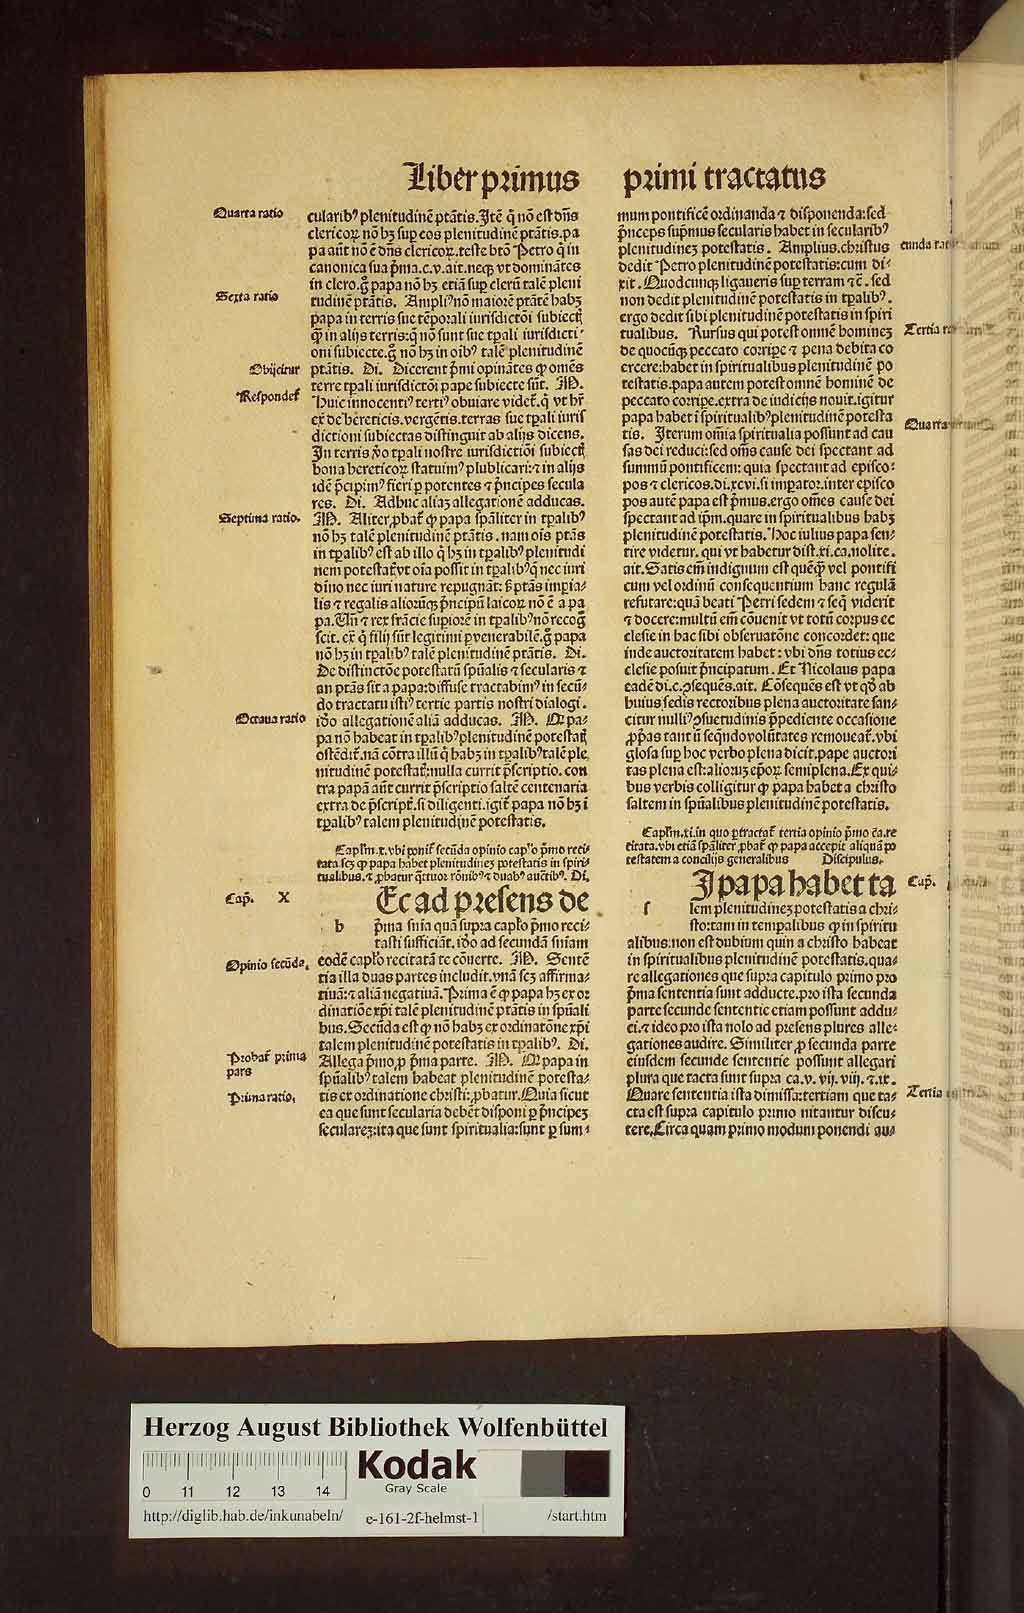 Liber primus primi tractatus
Quarta ratio
cularibꝰ plenitudinē ptātis. Itē q̄ nō est dn̄s
clericoꝝ nō hꝫ sup eos plenitudinē ptātis. pa
pa aūt nō ē dn̄s clericoꝝ. teste btō Petro q̄ in
canonica sua p̄ma. c. v. ait. neqꝫ vt dominātes
in clero. gͦ papa nō hꝫ etiā suꝑ clerū talē pleni
Sexta ratio
tudinē ptātis. Ampliꝰ nō maiorē ptātē habꝫ
papa in terris sue tēporali iurisdictōi subiectꝭ
qͣꝫ in alijs terris: q̄ nō sunt sue tꝑali iurisdicti⸗
oni subiecte. gͦ nō hꝫ in oibꝰ talē plenitudinē
Obijcitur
ptātis. Di. Dicerent p̄mi opinātes ꝙ omēs
terre tꝑali iurisdictōi pape subiecte sūt. M.
Respondeť
Huic innocentiꝰ tertiꝰ obuiare videť. q̄ vt hř
ex̄ de hēreticis. vergētis. terras sue tꝑali iuris
dictioni subiectas distinguit ab alijs dicens.
In terris v̄o tꝑali nostre iurisdictiōi subiectꝭ
bona hereticoꝝ statuimꝰ plublicari: ⁊ in alijs
idē p̄cipimꝰ fieri ꝑ potentes ⁊ p̄ncipes secula
res. Di. Adhuc aliaꝫ allegationē adducas.
Septima ratio.
M. Aliter ꝓbať ꝙ papa spāliter in tꝑalibꝰ
nō hꝫ talē plenitudinē ptātis. nam ois ptās
in tꝑalibꝰ est ab illo q̄ hꝫ in tꝑalibꝰ plenitudi
nem potestatꝭ vt oīa possit in tꝑalibꝰ q̄ nec iuri
dīno nec iuri nature repugnāt: sꝫ ptās imꝑia⸗
lis ⁊ regalis aliorūqꝫ p̄ncipū laicoꝝ nō ē a pa
pa. Vn̄ ⁊ rex frācie supiorē in tꝑalibꝰ nō recoḡ
scit. ex̄ q̄ filij sūt legitimi ꝑ venerabilē. gͦ papa
nō hꝫ in tꝑalibꝰ talē plenitudinē ptātis. Di.
De distinctōe potestatū spūalis ⁊ secularis ⁊
an ptās sit a papa: diffuse tractabimꝰ in secū⸗
do tractatu istiꝰ tertie partis nostri dialogi.
Octaua ratio
iōo allegationē aliā adducas. M. Ꝙ pa⸗
pa nō habeat in tꝑalibꝰ plenitudinē potestatꝭ
ostēdiť. nā cōtra illū q̄ habꝫ in tꝑalibꝰ talē ple
nitudinē potestatꝭ: nulla currit p̄scriptio. con
tra papā aūt currit p̄scriptio saltē centenaria
extra de p̄script̄. si diligenti. igiť papa nō hꝫ ī
tꝑalibꝰ talem plenitudinē potestatis.
Capľm. x. vbi poniť secūda opinio capľo p̄mo reci⸗
tata. scꝫ ꝙ papa habet plenitudinez potestatis in spiri⸗
tualibus. ⁊ ꝓbatur q̄ttuor rōnibꝰ ⁊ duabꝰ auctībꝰ. Di.
Cap̄. X
Ec ad presens de
b p̄ma snīa quā supra capľo p̄mo reci⸗
tasti sufficiāt. iōo ad secundā snīam
eodē capľo recitatā te cōuerte. M. Sentē
Opinio secūda.
tia illa duas partes includit. vnā scꝫ affirma⸗
tiuā: ⁊ aliā negatiuā. Prima ē ꝙ papa hꝫ ex or
dinatiōe xp̄i talē plenitudinē ptātis in spūali
bus. Secūda est ꝙ nō habꝫ ex ordinatōne xp̄i
talem plenitudinē potestatis in tꝑalibꝰ. Di.
Probať prima
pars
Allega p̄mo ꝓ p̄ma parte. M. Ꝙ papa in
spūalibꝰ talem habeat plenitudinē potesta⸗
Prima ratio.
tis ex ordinatione christi: ꝓbatur. Quia sicut
ea que sunt secularia debēt disponi ꝑ p̄ncipeꝫ
seculareꝫ: ita que sunt spiritualia: sunt ꝑ sum⸗
mum pontificē ordinanda ⁊ disponenda: sed
p̄nceps sup̄mus secularis habet in secularibꝰ
plenitudineꝫ potestatis. Amplius. christus
dedit Petro plenitudinē potestatis: cum di⸗
xit. Quodcunqꝫ ligaueris suꝑ terram ⁊ c̄. sed
non dedit plenitudinē potestatis in tꝑalibꝰ.
ergo dedit sibi plenitudinē potestatis in spiri
tualibus. Rursus qui potest omnē homineꝫ
de quocūqꝫ peccato corripe ⁊ pena debita co
ercere: habet in spiritualibus plenitudinē po
testatis. papa autem potest omnē hominē de
peccato corripe. extra de iudicijs nouit. igitur
papa habet ī spiritualibꝰ plenitudinē potesta
tis. Iterum om̄ia sp̄ritualia possunt ad cau
sas dei reduci: sed om̄s cause dei spectant ad
summū pontificem: quia spectant ad episco⸗
pos ⁊ clericos. di. xcvi. si imꝑator. inter episco
pos autē papa est p̄mus. ergo om̄es cause dei
spectant ad ip̄m. quare in spiritualibus habꝫ
plenitudinē potestatis. Hoc iulius papa sen⸗
tire videtur. qui vt habetur dist. xi. ca. nolite.
ait. Satis em̄ indignum est quēqꝫ vel pontifi
cum vel ordinū consequentium hanc regulā
refutare: quā beati Petri sedem ⁊ seq̄ viderit
⁊ docere: multū em̄ cōuenit vt totū corpus ec
clesie in hac sibi obseruatōne concordet: que
inde auctoritatem habet: vbi dn̄s totius ec⸗
clesie posuit p̄ncipatum. Et Nicolaus papa
eadē di. c. ꝯsequēs. ait. Cōsequēs est vt qď ab
huius sedis rectoribus plena auctoritate san⸗
citur nulliꝰ ꝯsuetudinis p̄pediente occasione
ꝓp̄as tantū seq̄ndo volūtates remoueať. vbi
glosa suꝑ hoc verbo plena dicit. pape auctori
tas plena est: alioruꝫ ep̄oꝝ semiplena. Ex qui⸗
bus verbis colligitur ꝙ papa habet a christo
saltem in spūalibus plenitudinē potestatis.
Capľm. xi. in quo ꝑtractať tertia opinio p̄mo ca. re
citata. vbi etiā spāliter ꝓbať ꝙ papa accepit aliquā po
testatem a concilijs generalibus Discipulus.
Cap̄.
I papa habet ta
s lem plenitudineꝫ potestatis a chri⸗
sto: tam in temꝑalibus qͣꝫ in spiritu
alibus: non est dubium quin a christo habeat
in spiritualibus plenitudinē potestatis. qua⸗
re allegationes que supra capitulo primo pro
p̄ma sententia sunt adducte. pro ista secunda
parte secunde sententie etiam possunt addu⸗
ci. ⁊ ideo pro ista nolo ad presens plures alle⸗
gationes audire. Similiter ꝓ secunda parte
eiusdem secunde sententie possunt allegari
plura que tacta sunt supra ca. v. vij. viij. ⁊. ix.
Quare sententia ista dimissa: tertiam que ta⸗
cta est supra capitulo primo nitantur discu⸗
tere. Circa quam primo modum ponendi au⸗
Tertia
Quarta
Tertia
Herzog August Bibliothek Wolfenbüttel
Kodak
Gray Scale
0 11 12 13 14
http://diglib.hab.de/inkunabeln/ e-161-2f-helmst-1 /start.htm